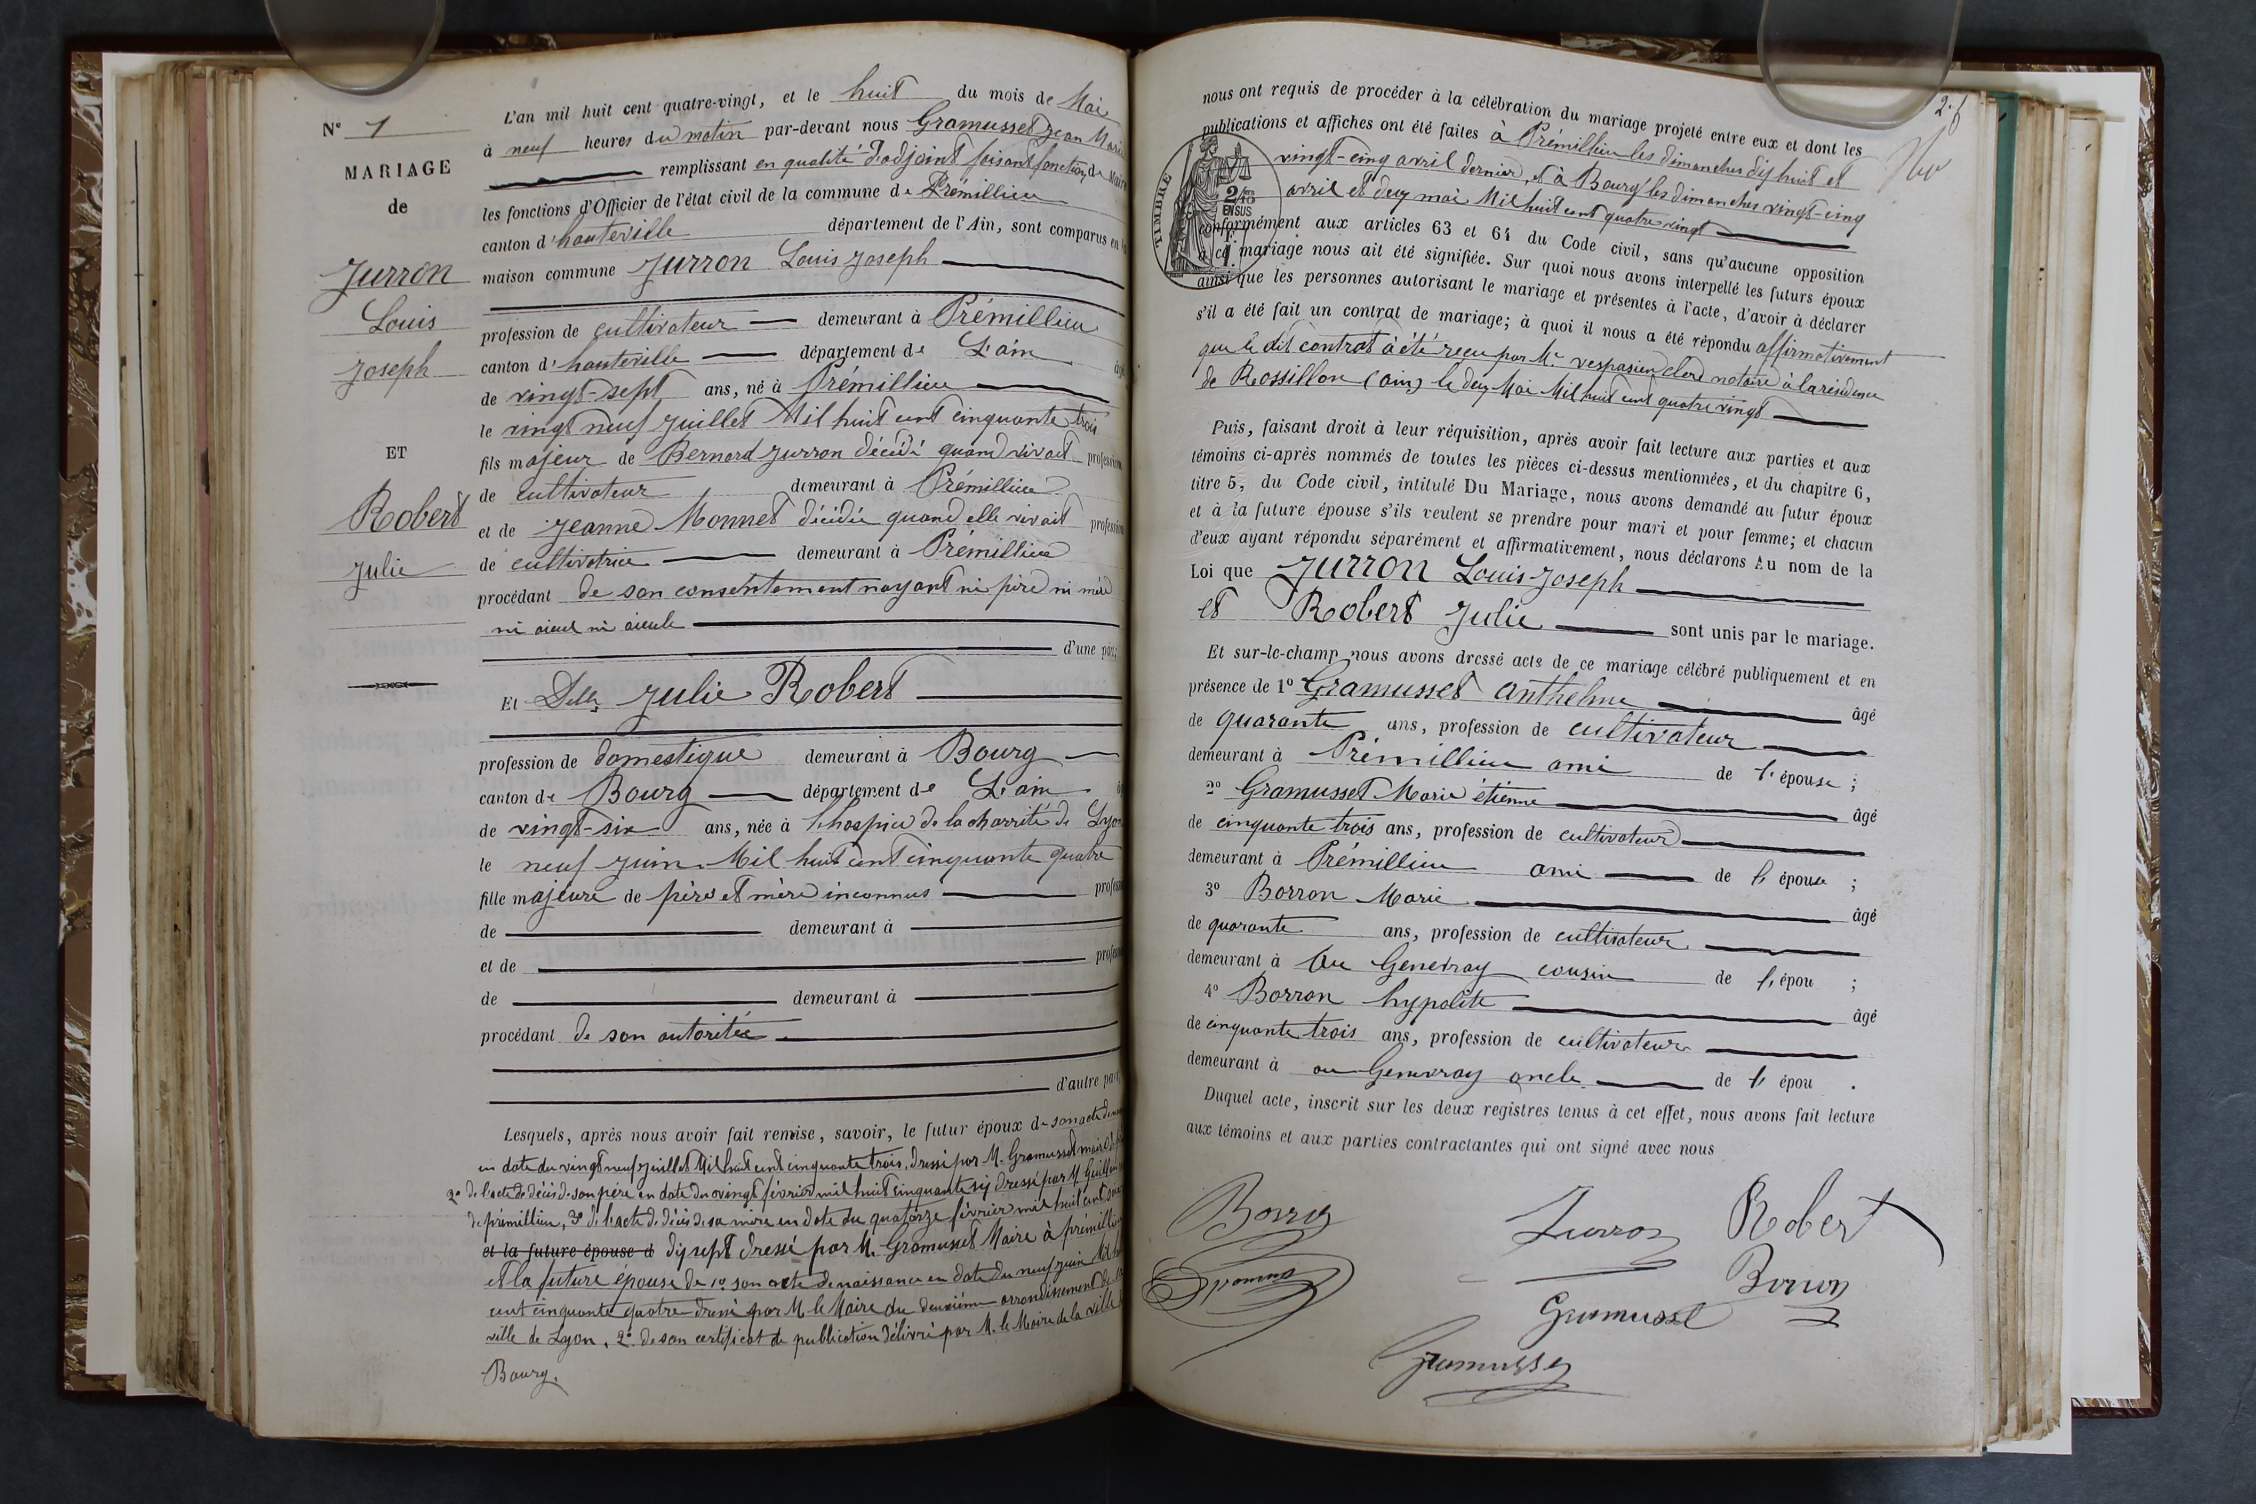 N° 1
MARIAGE
de
Jurron
Louis
Joseph
ET
Robert
Julie
L'an mil huit cent quatre-vingt, et le huit du mois de Mai
à neuf heures du matin par-devant nous Gramusset Jean Marie
remplissant en qualité d'adjoint faisant fonction de Maire
les fonctions d'Officier de l'état civil de la commune de Prémillieu
canton d'hauteville département de l'Ain, sont comparus en la
maison commune Jurron Louis Joseph
profession de cultivateur demeurant à Prémillieu
canton d'hauteville département de L'ain âgé
de vingt-sept ans, né à Prémillieu
le vingt neuf Juillet Mil huit cent cinquante trois
fils majeur de Bernard Jurron décédé quand vivait profession
de cultivateur demeurant à Prémillieu
et de Jeanne Monnet décédée quand elle vivait profession
de cultivatrice demeurant à Prémillieu
procédant de son consentement nayant ni père ni mère
ni aieul ni aieule
d'une part;
Et Delle Julie Robert
profession de domestique demeurant à Bourg
canton de Bourg département de L'ain
de vingt-six ans, née à l'hospice de la charrité de Lyon
le neuf Juin Mil huit cent cinquante quatre
fille majeure de père et mère inconnus profess
de demeurant à
et de profess
de demeurant à
procédant de son autoritée
d'autre part,
Lesquels, après nous avoir fait remise, savoir, le futur époux de son acte de
en date du vingt neuf Juillet Mil huit cent cinquante trois, dressé par M. Gramusset maire
2° de l'acte de décès de son père en date du vingt février mil huit cinquante six dressé par M.
de prémillieu, 3° de l'acte de décès de sa mère en date du quatorze février mil huit cent
et la future épouse d dix sept dressé par M. Gramusset Maire à prémillieu
et la future épouse de 1° son acte de naissance en date du neuf juin Mil
cent cinquante quatre dressé par M le Maire du deuxième arrondissement de la
ville de Lyon, 2° de son certificat de publication délivré par M. le Maire de la ville
Bourg.
nous ont requis de procéder à la célébration du mariage projeté entre eux et dont les
publications et affiches ont été faites à Prémillieu les dimanches dix huit et
vingt-cinq avril dernier, et à Bourg les dimanches vingt-cinq
avril et deux mai Mil huit cent quatre vingt
TIMBRE
2/10
EN SUS
conformément aux articles 63 et 64 du Code civil, sans qu'aucune opposition
à ce mariage nous ait été signifiée. Sur quoi nous avons interpellé les futurs époux
ainsi que les personnes autorisant le mariage et présentes à l'acte, d'avoir à déclarer
s'il a été fait un contrat de mariage; à quoi il nous a été répondu affirmativement
que le dit contrat à été reçu par Me vespasien clerc notaire à la résidence
de Rossillon (ain) le deux Mai Mil huit cent quatre vingt
Puis, faisant droit à leur réquisition, après avoir fait lecture aux parties et aux
témoins ci-après nommés de toutes les pièces ci-dessus mentionnées, et du chapitre 6,
titre 5, du Code civil, intitulé Du Mariage, nous avons demandé au futur époux
et à la future épouse s'ils veulent se prendre pour mari et pour femme; et chacun
d'eux ayant répondu séparément et affirmativement, nous déclarons Au nom de la
Loi que Jurron Louis Joseph
et Robert Julie sont unis par le mariage.
Et sur-le-champ nous avons dressé acte de ce mariage célébré publiquement et en
présence de 1° Gramusset anthelme âgé
de quarante ans, profession de cultivateur
demeurant à Prémillieu ami de l'épouse;
2° Gramusset Marie étienne âgé
de cinquante trois ans, profession de cultivateur
demeurant à Prémillieu ami de l'épouse;
3° Borron Marie âgé
de quarante ans, profession de cultivateur
demeurant à Au Genevray cousin de l'épou;
4° Borron hypolite âgé
de cinquante trois ans, profession de cultivateur
demeurant à au Genevray oncle de l'épou.
Duquel acte, inscrit sur les deux registres tenus à cet effet, nous avons fait lecture
aux témoins et aux parties contractantes qui ont signé avec nous
Jurron Robert
Borron
Gramusset